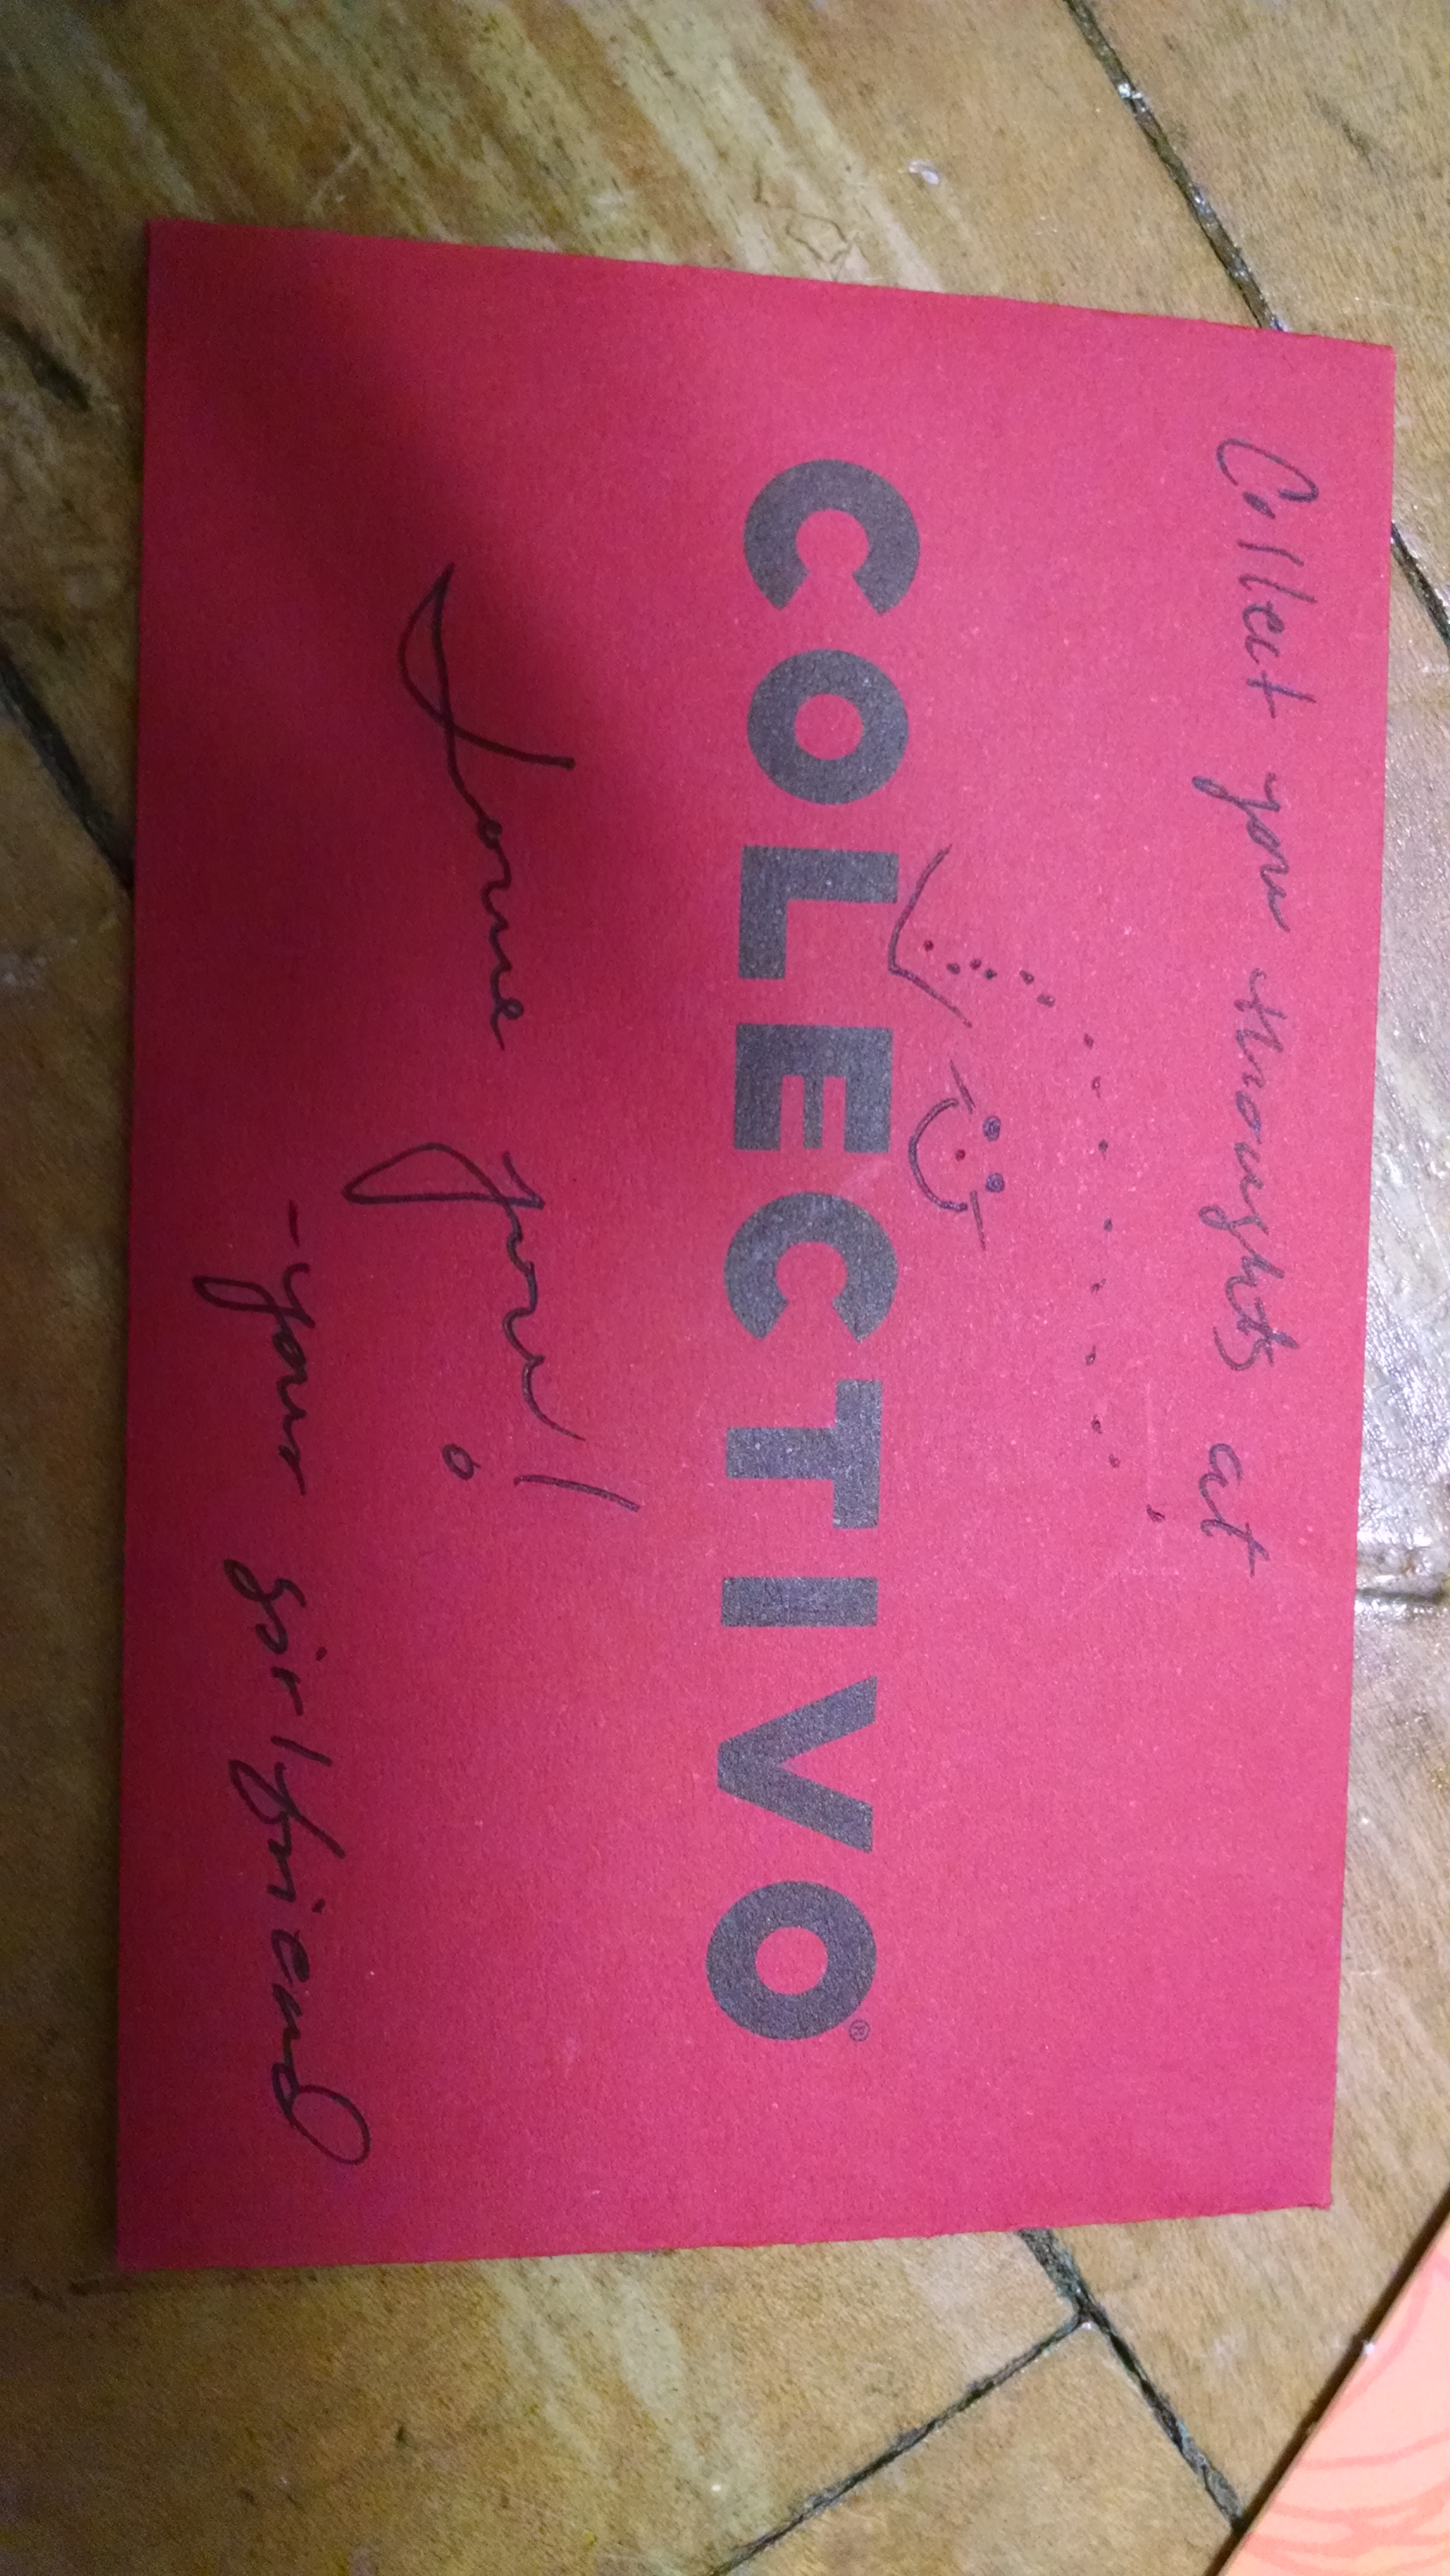 Collect your thoughts at
COLECTIVO®
Love you!
- your girlfriend